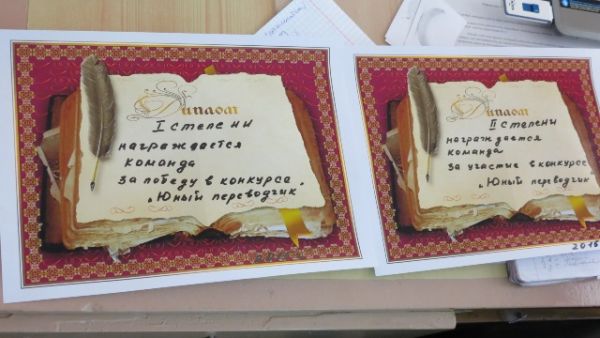 Диплом
I степени
награждается
команда
за победу в конкурсе
„Юный переводчик"
Диплом
II степени
награждается
команда
за участие в конкурсе
„Юный переводчик"
2016